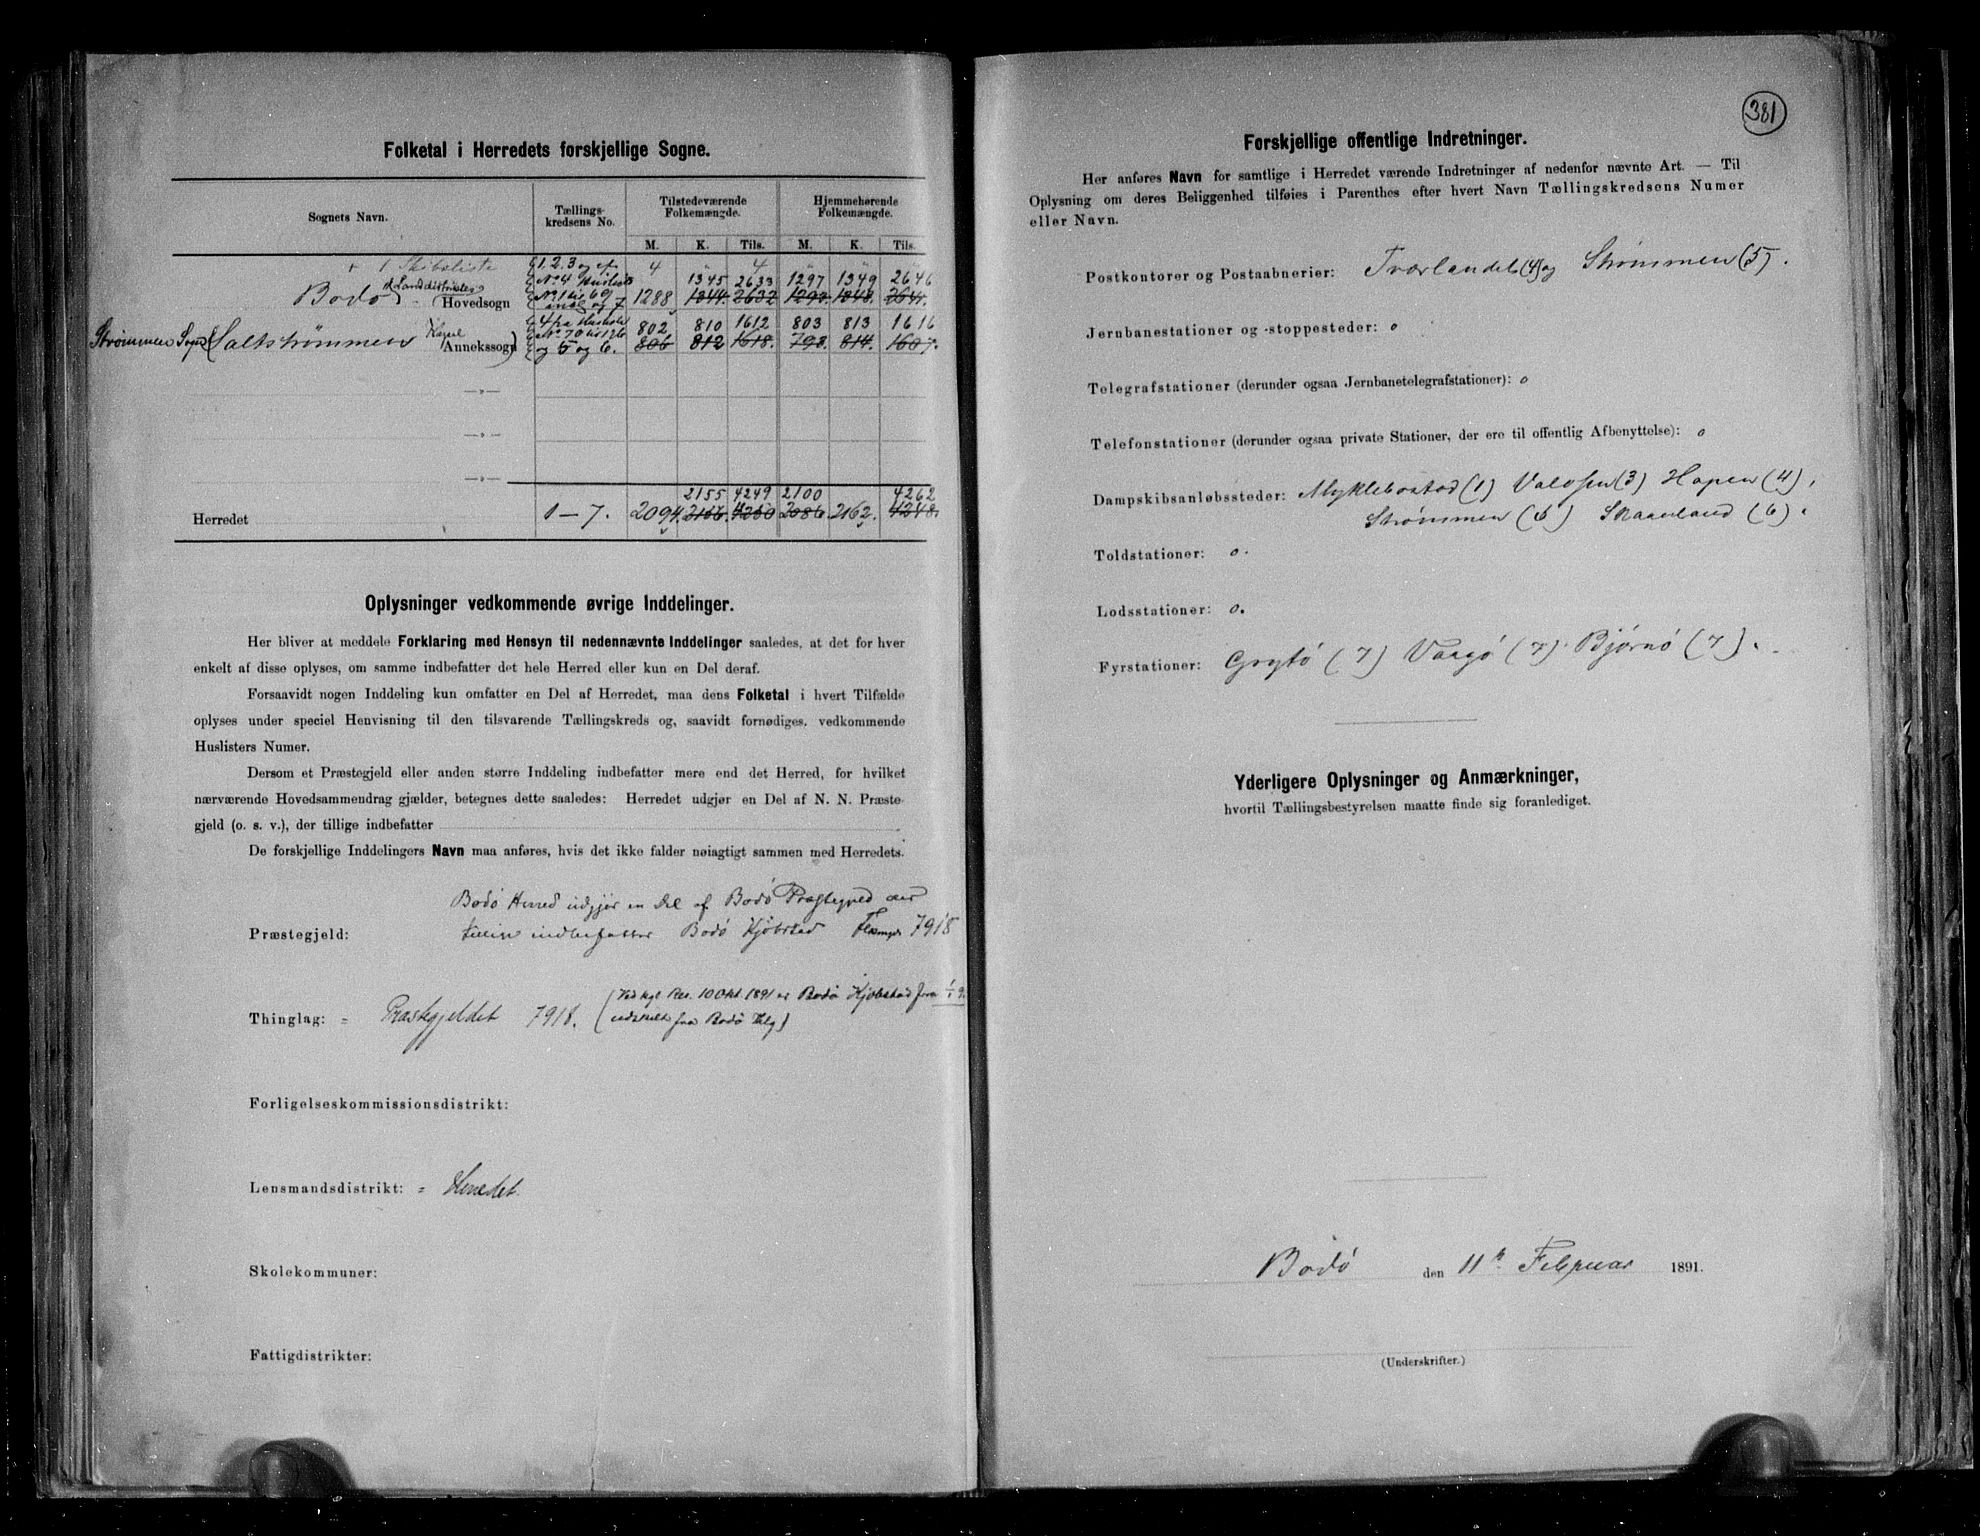 Folketal i Herredets forskjellige Sogne.
Sognets Navn. Tællings-kredsens No. Tilstedeværende Folkemængde. Hjemmehørende Folkemængde.
M. K. Tils. M. K. Tils.
+ 1 Skibsliste 1. 2. 3 og af 4 " 4 " " "
1345 2633 1297 1349 2646
Bodø Landdistrikts Hovedsogn No. 1 til 69 og 7 1288 1344. 2632 1293. 1348. 2641.
802 810 1612 803 813 1616
Strømmen Sogn (Saltstrømmen Annekssogn) og 5 og 6. 806 812 1618. 793. 814. 1607.
—„—
—„—
—„—
2155 4249 2100 4262
Herredet 1–7. 2094. 2156. 4250 2086. 2162. 4248.
Oplysninger vedkommende øvrige Inddelinger.
Her bliver at meddele Forklaring med Hensyn til nedennævnte Inddelinger saaledes, at det for hver
enkelt af disse oplyses, om samme indbefatter det hele Herred eller kun en Del deraf.
Forsaavidt nogen Inddeling kun omfatter en Del af Herredet, maa dens Folketal i hvert Tilfælde
oplyses under speciel Henvisning til den tilsvarende Tællingskreds og, saavidt fornødiges. vedkommende
Huslisters Numer.
Dersom et Præstegjeld eller anden større Inddeling indbefatter mere end det Herred, for hvilket
nærværende Hovedsammendrag gjælder, betegnes dette saaledes: Herredet udgjør en Del af N. N. Præste-
gjeld (o. s. v.), der tillige indbefatter
De forskjellige Inddelingers Navn maa anføres, hvis det ikke falder nøiagtigt sammen med Herredets.
Bodø Herred udgjør en Del af Bodø Præstegjeld der
Præstegjeld: tillige indbefatter Bodø Kjøbstad 7918
(Ved kgl Res. 10 Okt. 1891 er Bodø Kjøbstad fra 1/1 9
Thinglag: = Præstegjeldet 7918. udskilt fra Bodø Thlg)
Forligelseskommissionsdistrikt:
Lensmandsdistrikt: = Herredet.
Skolekommuner:
Fattigdistrikter:
381
Forskjellige offentlige Indretninger.
Her anføres Navn for samtlige i Herredet værende Indretninger af nedenfor nævnte Art. — Til
Oplysning om deres Beliggenhed tilføies i Parenthes efter hvert Navn Tællingskredsens Numer
eller Navn.
Postkontorer og Postaabnerier: Tværlandet (4) og Strømmen (5).
Jernbanestationer og -stoppesteder: 0
Telegrafstationer (derunder ogsaa Jernbanetelegrafstationer): 0
Telefonstationer (derunder ogsaa private Stationer, der ere til offentlig Afbenyttelse): 0
Dampskibsanløbssteder: Myklebostad (1) Valosen (3) Hopen (4),
Strømmen (6) Skaanland (6).
Toldstationer: 0.
Lodsstationer: 0.
Fyrstationer: Grytø (7) Vaagø (7). Bjørnø (7).
Yderligere Oplysninger og Anmærkninger,
hvortil Tællingsbestyrelsen maatte finde sig foranlediget.
Bodø den 11te Februar 1891.
(Underskrifter.)